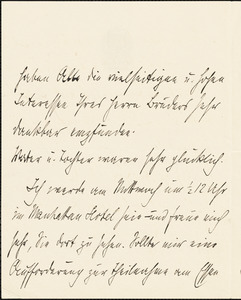 haben Alle die vielseitigen u. hohen
Interessen Ihres Herrn Bruders sehr
dankbar empfunden.
Vater u. Tochter waren sehr glücklich.
Ich werde am Mittwoch um ½ 12 Uhr
im Manhatan Hotel sein und freue mich
sehr, Sie dort zu sehen. Sollte mir eine
Aufforderung zur Theilnahme am Essen